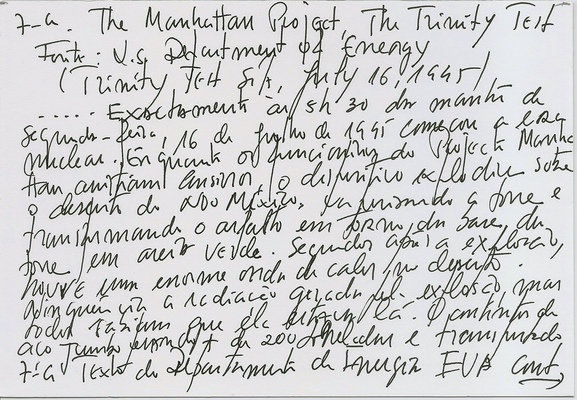 7-a. The Manhattan Project, The Trinity Test
Fonte: U.S. Department of Energy
(Trinity Test Site, July 16, 1945)
..... Exactamente às 5h 30 da manhã de
segunda-feira, 16 de Julho de 1945 começou a era
nuclear. Enquanto os funcionários do Projecto Manha
ttan ansiosos, o dispositivo explodiu sobre
o deserto do Novo México, vaporizando a torre e
transformando o asfalto em torno da base da
torre em areia verde. Segundos após a explosão,
houve uma enorme onda de calor no deserto.
Ninguém a radiação gerada pela explosão, mas
todos sabiam que ela estava lá. O contentor de
aço pesando + de 200 toneladas e transportado
7-a Texto do Departamento de Energia EUA cont,